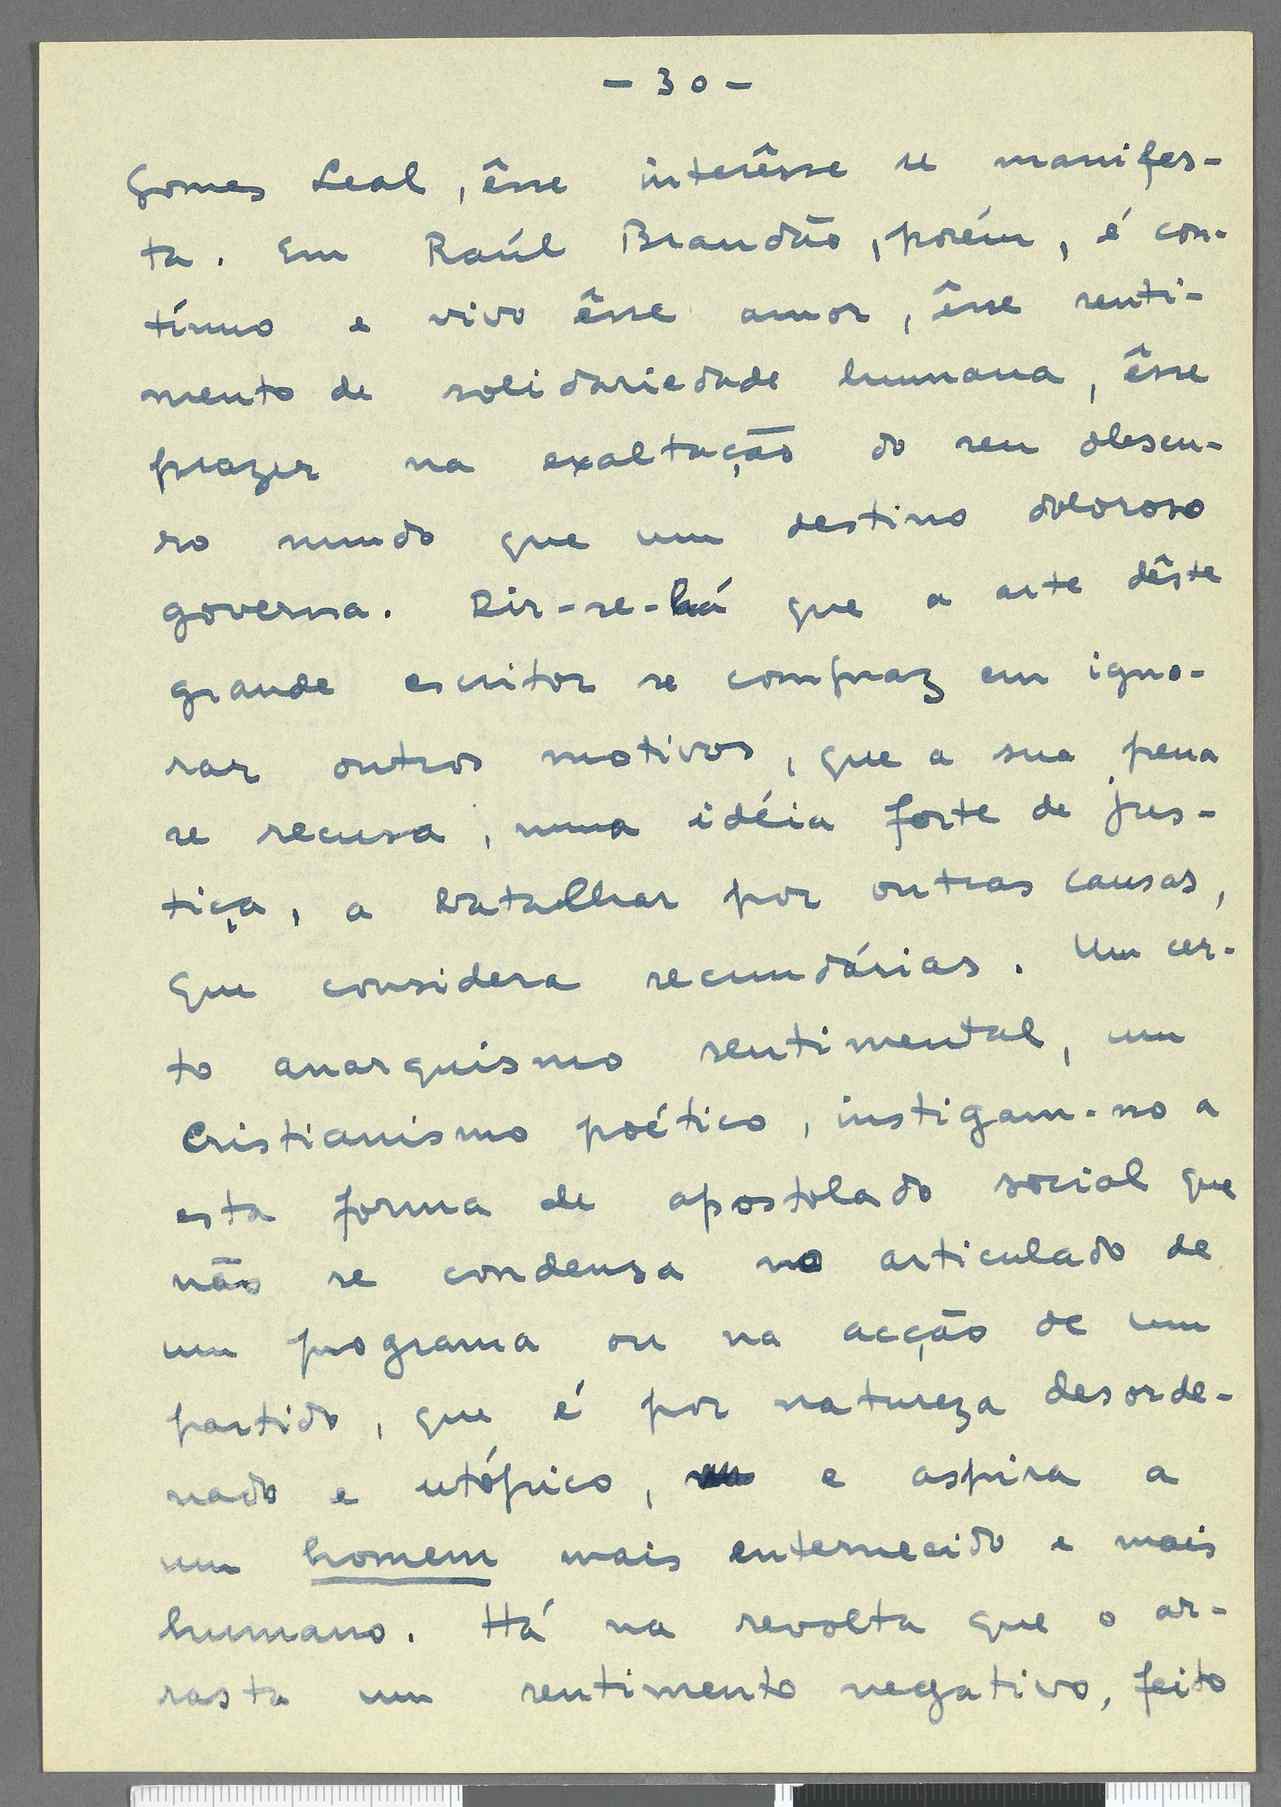 - 30 -
Gomes Leal, êsse interêsse se manifes-
ta. Em Raúl Brandão, porém, é con-
tínuo e vivo êsse amor, êsse senti-
mento de solidariedade humana, êsse
prazer na exaltação do seu obscu-
ro mundo que um destino doloroso
governa. Dir-se-há que a arte dêste
grande escritor se compraz em igno-
rar outros motivos, que a sua pena
se recusa, numa idéia forte de jus-
tiça, a batalhar por outras causas,
que considera secundárias. Um cer-
to anarquismo sentimental, um
Cristianismo poético, instigam-no a
esta forma de apostolado social que
não se condensa no articulado de
um programa ou na acção de um
partido, que é por natureza desorde-
nado e utópico, e aspira a
um homem mais enternecido e mais
humano. Há na revolta que o ar-
rasta um sentimento negativo, feito